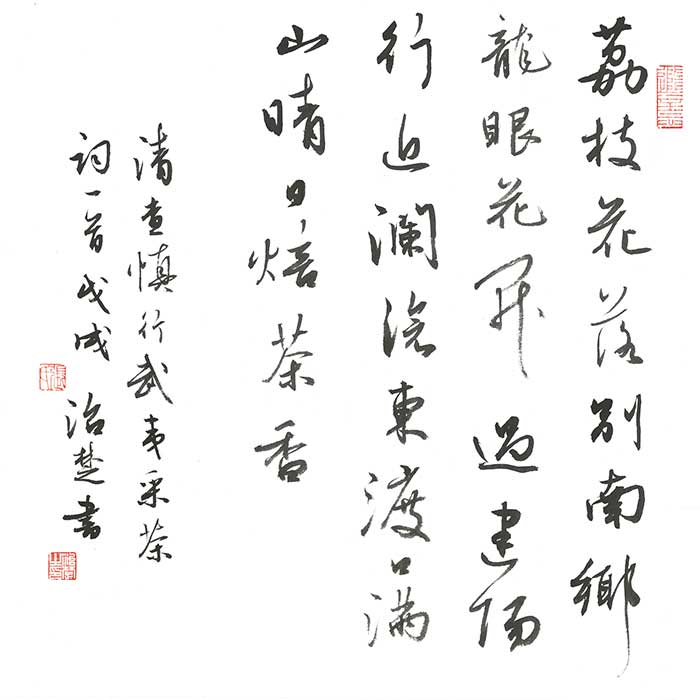 荔枝花落别南鄉
龍眼花開過建陽
行近瀾滄東渡口滿
山晴日焙茶香
清查慎行武夷采茶
詞一首戊戌 治楚書